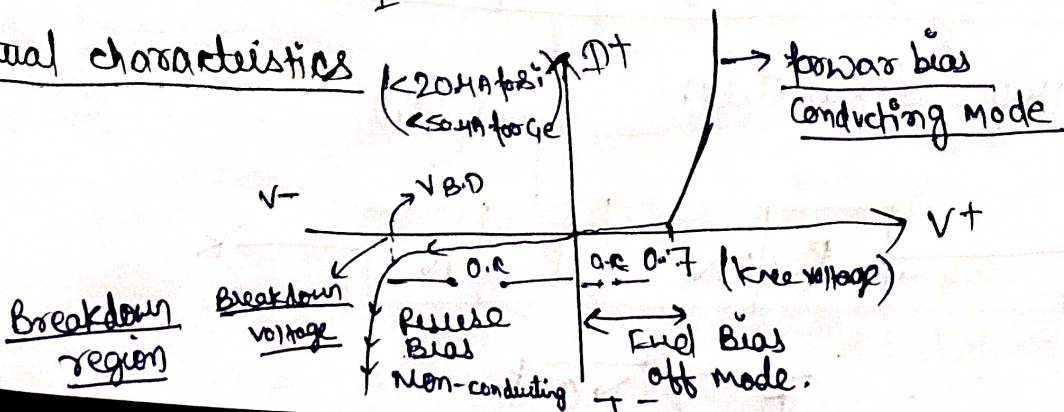 ual characteristics
<20μA for Si
<50μA for Ge
D+
→ forwar bias
Conducting Mode
V-
VB.D
V+
O.C
O.C 0.7 (Knee voltage)
Breakdown
region
Breakdown
voltage
Reverse
Bias
Non-conducting
Fwd Bias
off Mode.